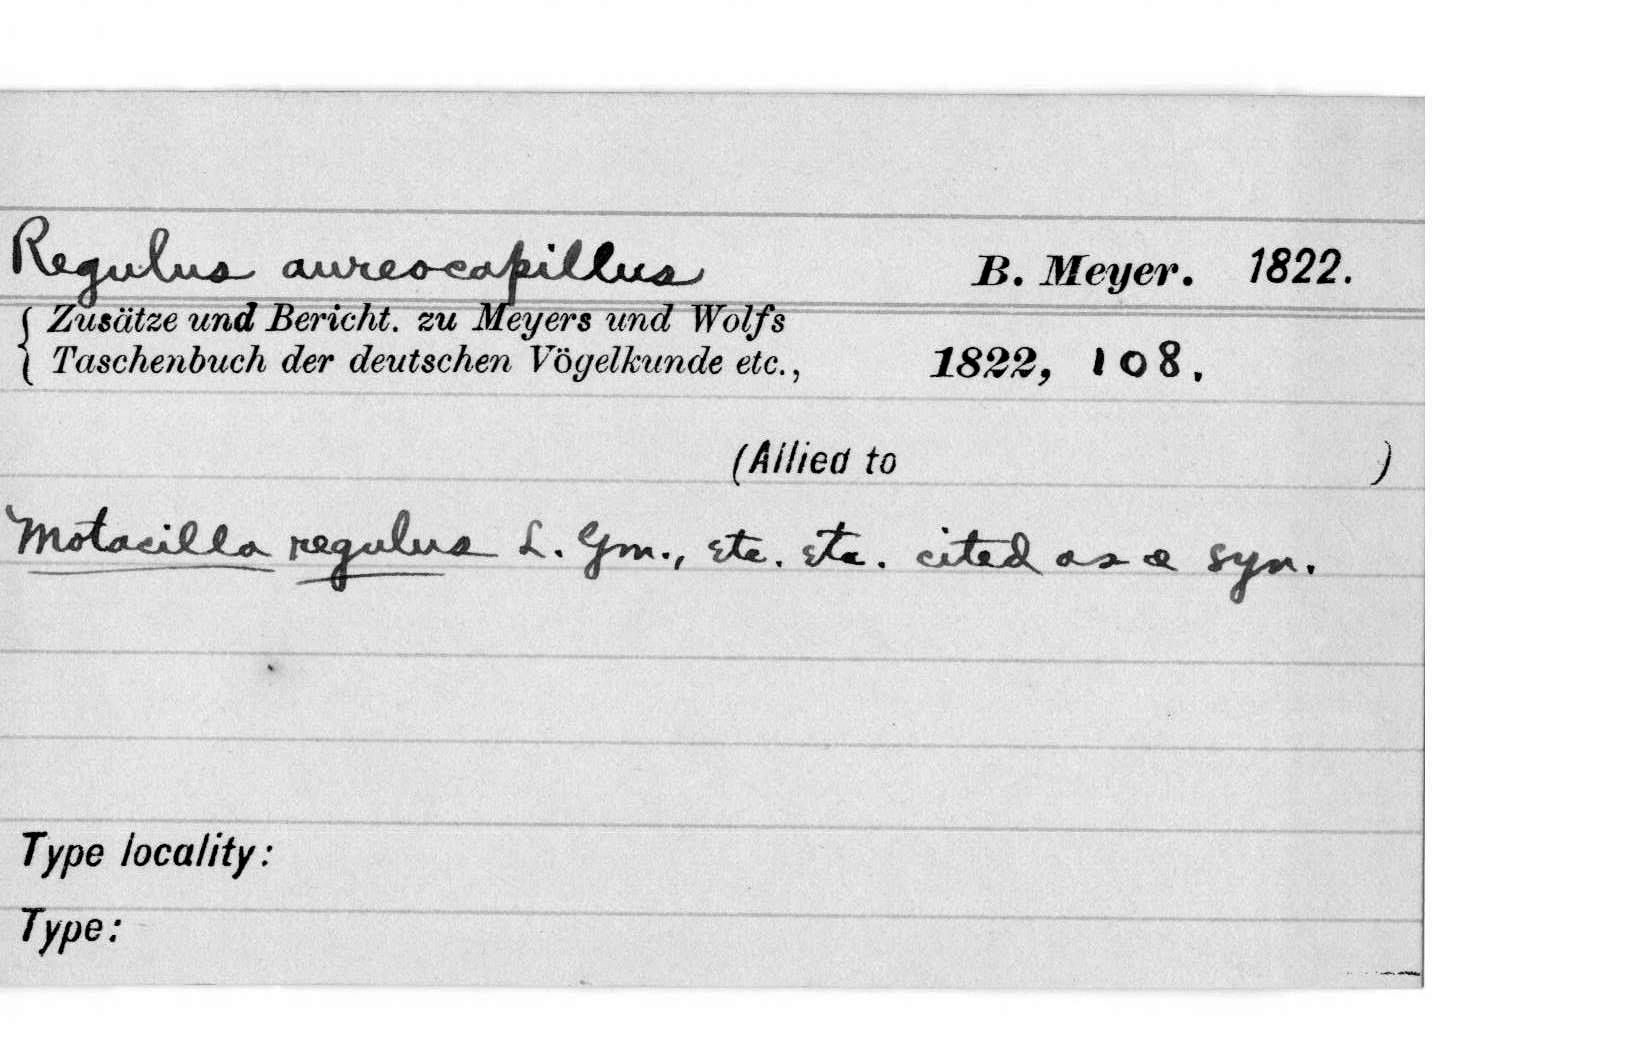 Regulus aureocapillus B. Meyer. 1822.
Zusätze und Bericht. zu Meyers und Wolfs
Taschenbuch der deutschen Vögelkunde etc., 1822, 108.
(Allied to )
Motacilla regulus L. Gm., etc. etc. cited as a syn.
Type locality:
Type: